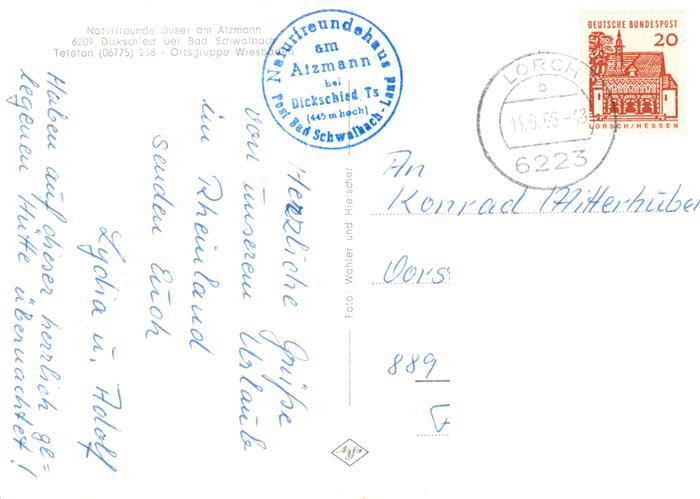 Naturfreundehäuser am Atzmann
6209 Dickschied bei Bad Schwalbach
Telefon (06775) 258 - Ortsgruppe Wiesbaden
Naturfreundehaus
am
Atzmann
bei
Dickschied/Ts
(445 m hoch)
Post Bad Schwalbach-Land
DEUTSCHE BUNDESPOST
20
LORSCH/HESSEN
LORCH
b
6223
Herzliche Grüße
von unserem Urlaub
im Rheinland
senden Euch
Lydia u. Adolf
Haben auf dieser herrlich ge-
legenen Hütte übernachtet!
Foto: Wahler und Hielscher
An
Konrad Mitterhuber
Vors
889
Agfa